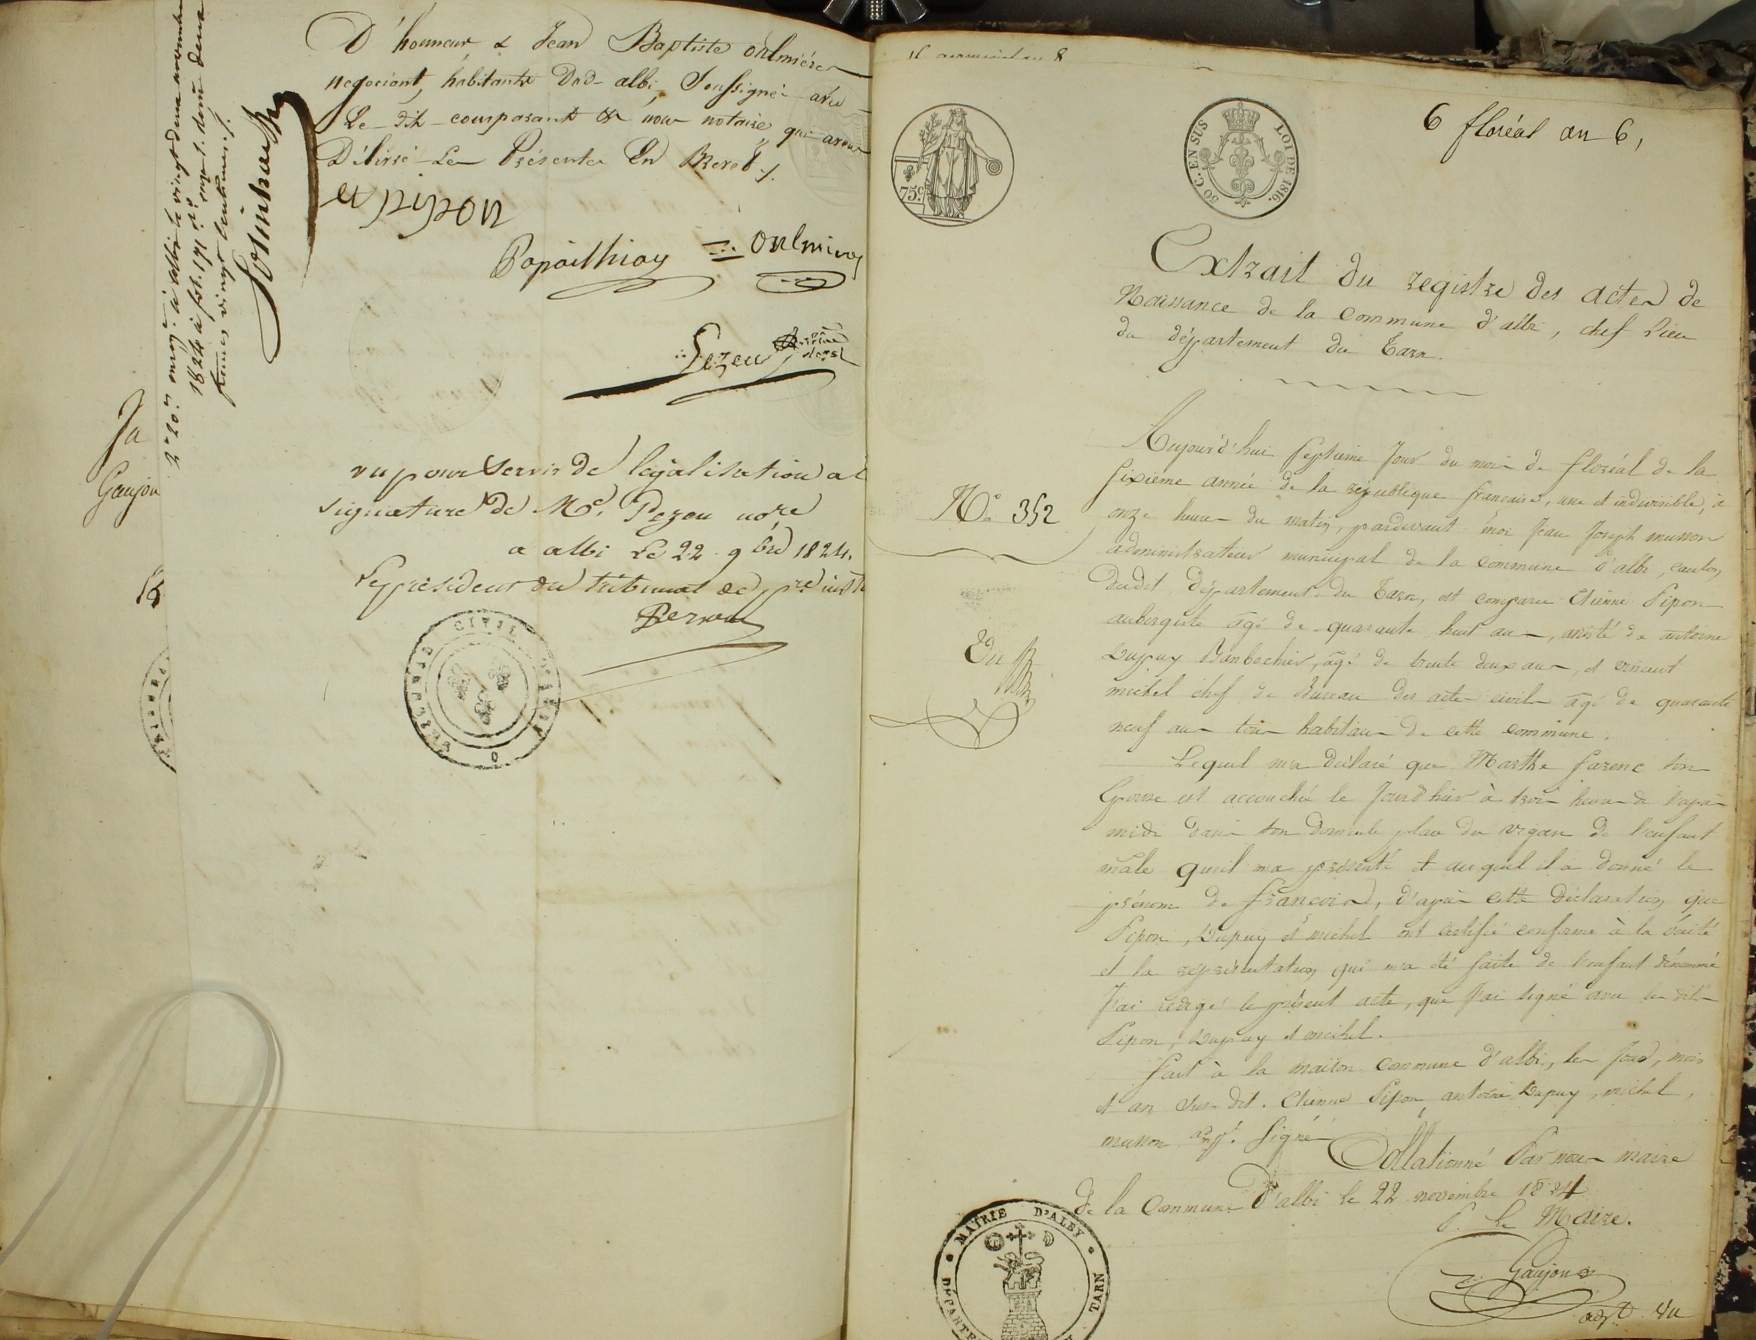 D'honneur & Jean Baptiste oulmière
négociant, habitants dud. albi, Soussigné avec
Le dit comparant & nous notaire qui avons
Délivré Le Présente En Brevet.
et pipon
Papailhiay oulmieres
Pezeu notaire
vu pour servir de légalisation a la
signature de Me. Pezeu nore
a albi Le 22 9bre 1824.
Le president du tribunal de pre instce
TRIBUNAL CIVIL
Ja
Gaujou
6 floréal an 6,
75c.
50 C. EN SUS
LOI DE 1816.
Extrait du registre des actes de
Naissance de la commune d'albi, chef Lieu
du département du Tarn.
No. 352
Aujourd'hui septieme Jour du mois de floréal de la
sixieme année de la république francaise, une et indivisible, à
onze heures du matin, pardevant moi Jean Joseph musson
administrateur municipal de la commune d'albi, canton
dudit département du Tarn, est comparu Etienne Pipon
aubergiste agé de quarante huit ans, assisté de antoine
Dupuy, agé de trente deux ans, et
michel chef de Bureau des actes civils agé de quarante
neuf ans tous habitans de cette commune.
Lequel m'a déclaré que Marthe farenc son
Epouse est accouchée le Jourd'hier à trois heures de l'après
midi dans son domicile place du vigan de l'enfant
male qu'il m'a présenté et auquel il a donné le
prénom de francois, d'après cette déclaration, que
Pipon, Dupuy et michel ont certifié conforme à la vérité
et la représentation qui m'a été faite de l'enfant dénommé
J'ai redigé le présent acte, que j'ai signé avec les dits
Pipon, Dupuy et michel.
fait à la maison commune d'albi, les Jour, mois
et an sus dit. Etienne Pipon, antoine Dupuy, michel,
musson signé
Collationné Par nous maire
de la Commune d'albi le 22 novembre 1824
P. Le Maire.
Gaujou
MAIRIE D'ALBY
TARN